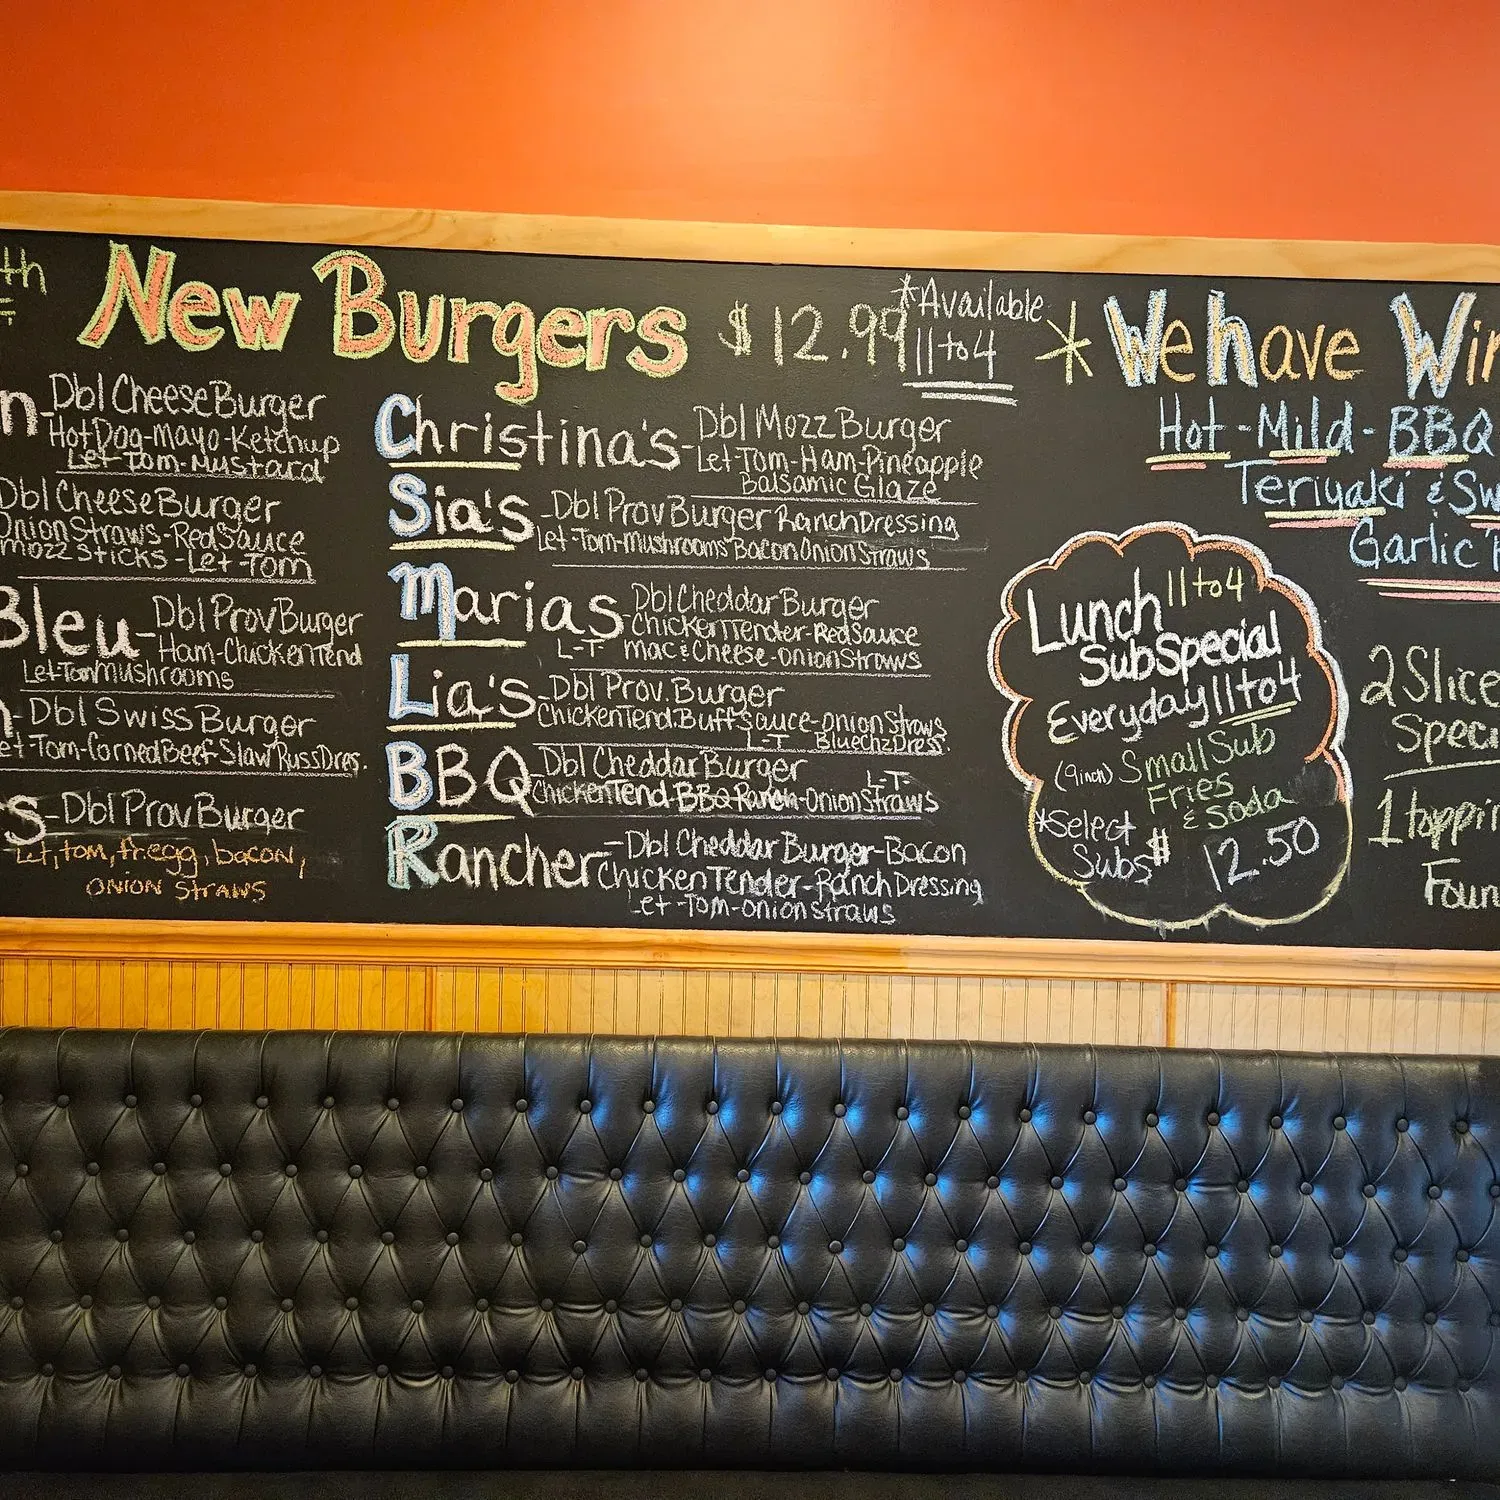 th
New Burgers $12.99 *Available
11 to 4
n- Dbl Cheese Burger
Hot Dog-Mayo-Ketchup
Let-Tom-Mustard
Dbl Cheese Burger
Onion Straws-Red Sauce
Mozz Sticks-Let-Tom
Bleu- Dbl Prov Burger
Ham-Chicken Tend
Let-Tom Mushrooms
- Dbl Swiss Burger
et-Tom-Corned Beef-Slaw Russ Dres.
s- Dbl Prov Burger
Let, tom, fr.egg, bacon,
onion straws
Christina's- Dbl Mozz Burger
Let-Tom-Ham-Pineapple
Balsamic Glaze
Sia's- Dbl Prov Burger Ranch Dressing
Let-Tom-Mushrooms Bacon Onion Straws
Marias- Dbl Cheddar Burger
Chicken Tender-Red Sauce
L-T- Mac & Cheese-Onion Straws
Lia's- Dbl Prov. Burger
Chicken Tend. Buff Sauce-Onion Straws
L-T Blue Chz Dress.
BBQ- Dbl Cheddar Burger L-T-
Chicken Tend-BBQ Ranch-Onion Straws
Rancher- Dbl Cheddar Burger-Bacon
Chicken Tender-Ranch Dressing
Let-Tom-onion straws
* We have Win
Hot-Mild-BBQ
Teriyaki & Sw
Garlic P
Lunch 11 to 4
Sub Special
Everyday 11 to 4
(9 inch) Small Sub
Fries
& Soda
*Select
Subs $12.50
2 Slice
Speci
1 toppin
Foun